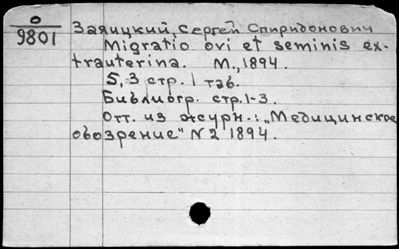 О
9801
Заяицкий, Сергей Спиридонович
Migratio ovi et seminis ex-
trauterina. М., 1894.
5, 3 стр. 1 таб.
Библиогр. стр. 1-3.
Отт. из журн.: „Медицинское
обозрение" N 2 1894.